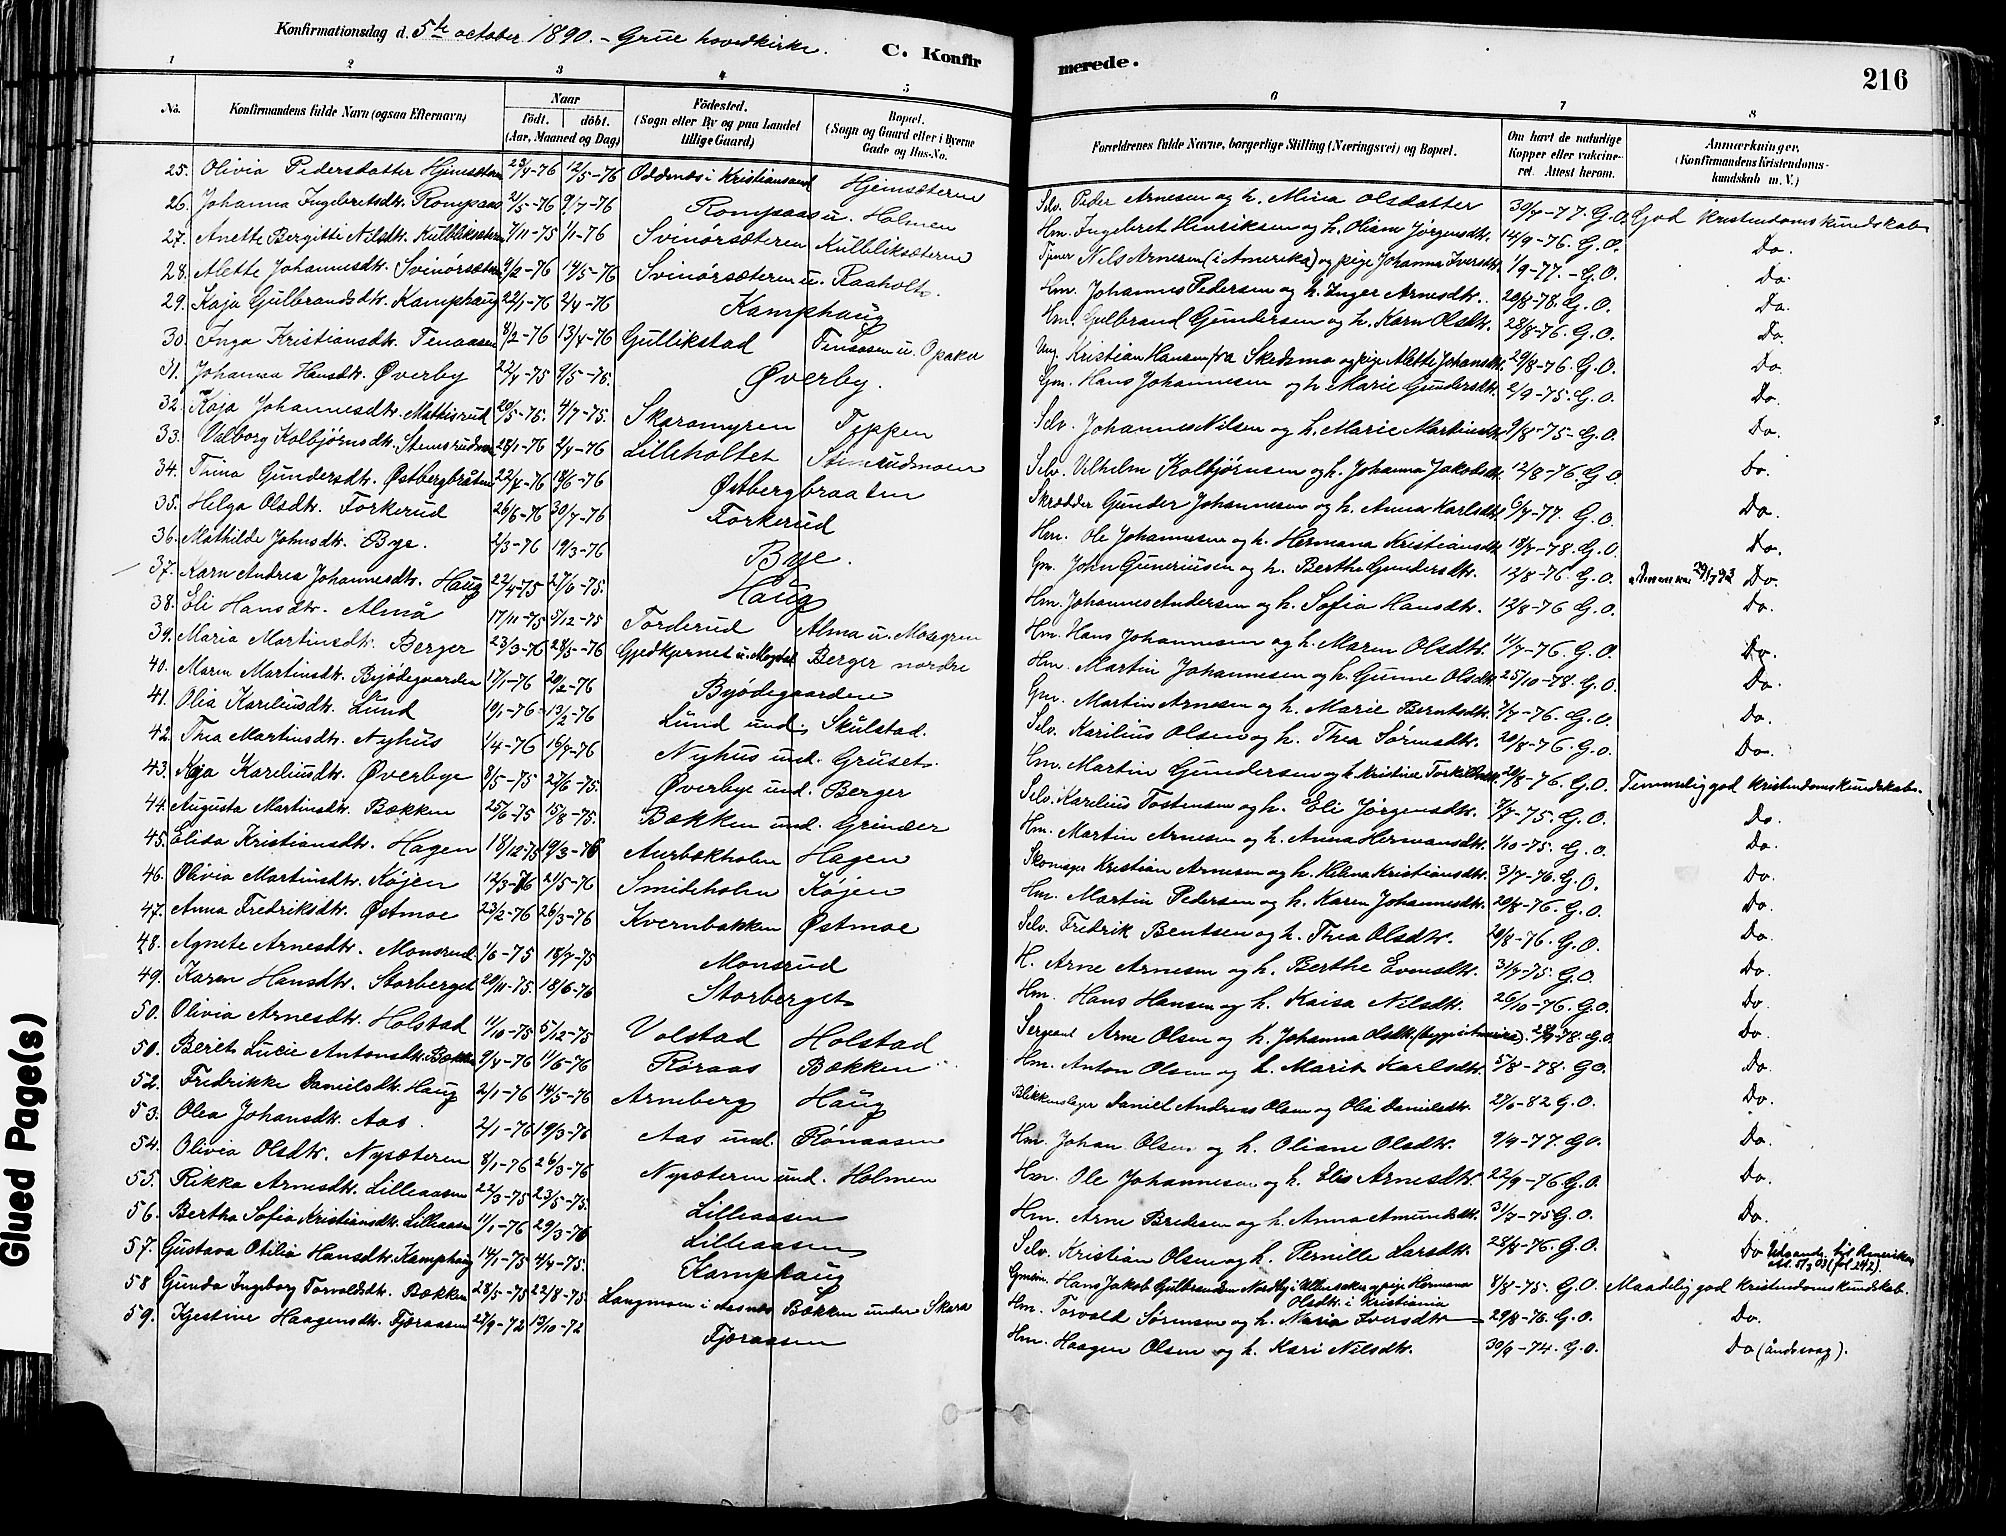 Konfirmationsdag d. 5te october 1890. – Grue hovedkirke.
C. Konfirmerede.
216
1 2 3 4 5 6 7 8
No. Konfirmandens fulde Navn (ogsaa Efternavn) Naar født. døbt. (Aar, Maaned og Dag) Födested. (Sogn eller By og paa Landet tillige Gaard) Bopæl. (Sogn og Gaard eller i Byerne Gade og Hus-No. Forældrenes fulde Navne, borgerlige Stilling (Næringsvei) og Bopæl. Om havt de naturlige Kopper eller vakcineret. Attest herom. Anmærkninger. (Konfirmandens Kristendomskundskab m. V.)
25. Olivia Pedersdatter Hjemsæteren 23/4-76 12/5-76 Oddernes i Kristiansand Hjemsæteren Selv. Peder Arnesen og h. Mina Olsdatter 30/7-77. G.O. God kristendomskundskab
26. Johanna Ingebretsdtr. Rompaas 2/5-76 9/7-76 Rompaas u. Holmen Hm. Ingebret Henriksen og h. Oliana Jørgensdtr. 14/9-76. G.O. Do.
27. Anette Bergitti Nilsdtr. Kulbliksæteren 7/11-75 1/1-76 Svinørsæteren Kulbliksæteren Tjener Nils Arnesen (i Amerika) og pige Johanna Iversdtr. 1/9-77. - G.O. Do.
28. Alette Johannesdtr. Svinørsæteren 9/2-76 14/5-76 Svinørsæteren u. Raaholt. Hm. Johannes Pedersen og h. Inger Arnesdtr. 20/8-78. G.O. Do.
29. Kaja Gulbrandsdtr. Kamphaug 22/1-76 2/4-76 Kamphaug Hm. Gulbrand Gundersen og h. Karn Olsdtr. 28/8-76. G.O. Do.
30. Inga Kristiansdtr. Tenaasen 8/2-76 13/4-76 Gullikstad Tenaasen u. Opaker Ung. Kristian Hansen fra Skedsmo og pige Alette Johansdtr. 29/8-76. G.O. Do.
31. Johanna Hansdtr. Øverby 22/4-75 9/5-75. Øverby. Gm. Hans Johannesen og h. Marie Gundersdtr. 2/9-75. G.O. Do.
32. Kaja Johannesdtr. Mathisrud 20/5-75. 4/7-75. Skaramyren Teppen Selv. Johannes Nilsen og h. Marie Martinsdtr. 9/8-75- G.O. Do.
33. Valborg Kolbjørnsdtr. Stemsrudmoen 28/1-76 2/4-76 Lilleholtet Stemsrudmoen Selv. Vilhelm Kolbjørnsen og h. Johanna Jakobsdtr. 12/8-76. G.O. Do.
34. Trina Gundersdtr. Østbergbråten 22/4-76 18/6-76 Østbergbraaten Skrædder Gunder Johannesen og h. Anna Karlsdtr. 6/7-77. G.O. Do.
35. Helga Olsdtr. Torkerud 26/6-76 30/7-76 Torkerud Hm. Ole Johannesen og h. Hermana Kristiansdtr. 18/7-78. G.O. Do.
36. Mathilde Johnsdtr. Bye. 2/3-76 19/3-76 Bye. Gm. John Guneriusen og h. Berthe Gundersdtr. 12/8-76. G.O. Do.
37. Karn Andrea Johannesdtr. Haug 22/4-75 27/6-75. Haug Hm. Johannes Andersen og h. Sofia Hansdtr. 12/8-76 G.O. Do.
38. Eli Hansdtr. Almå 17/11-75 5/12-75 Torderud Alma u. Mosegren Hm. Hans Johannesen og h. Maren Olsdtr. 11/7-76. G.O. Do.
39. Maria Martinsdtr. Berger 23/3-76 28/5-76 Gjedtjernet u. Berger nordre Hm. Martin Johannesen og h. Gunne Olsdtr. 25/10-78. G.O. Do.
40. Maren Martinsdtr. Byjødegaarden 17/1-76 20/2-76 Byjødegaarden Gm. Martin Arnesen og h. Marie Berntsdtr. 7/7-76. G.O. Do.
41. Olia Kareliusdtr. Lund 10/1-76- 13/2-76 Lund und. Skulstad. Selv. Karilius Olsen og h. Thea Sørensdtr. 20/8-76. G.O. Do.
42. Thea Martinsdtr. Nyhus 1/4-76 16/7-76 Nyhus und. Gruset. Hm. Martin Gundersen og h. Kristine Torkildsdtr. 28/8-76. G.O. Temmelig god kristendomskundskab.
43. Kaja Kareliusdtr. Øverbye 8/5-75 27/6-75. Øverbye und. Berger Selv. Karelius Tostensen og h. Eli Jørgensdtr. 7/7-75. G.O. Do.
44. Augusta Martinsdtr. Bækken 25/6-75 15/8-75. Bækken und. Grinder Hm. Martin Arnesen og h. Anna Hermansdtr. 1/10-75. G.O. Do.
45. Elida Kristiansdtr. Hagen 18/12-75 19/3-76 Aurbækholm Hagen Skomager Kristian Arnesen og h. Helena Kristiansdtr. 3/7-76. G.O. Do.
46. Olivia Martinsdtr. Køjen 12/3-76 21/5-76 Smideholm Køjen Hm. Martin Pedersen og h. Karen Johannesdtr. 20/8-76. G.O. Do.
47. Anna Fredriksdtr. Østmoe 23/2-76 26/3-76 Kvernbakken Østmoe Selv. Fredrik Bentsen og h. Thea Olsdtr. 20/8-76. G.O. Do.
48. Agnete Arnesdtr. Monsrud 1/6-75 18/7-75 Monsrud H. Arne Arnesen og h. Berthe Evensdtr. 31/7-75. G.O. Do.
49. Karen Hansdtr. Storberget 20/11-75. 18/6-76 Storberget Hm. Hans Hansen og h. Kaisa Nilsdtr. 26/10-76. G.O. Do.
50. Olivia Arnesdtr. Holstad 11/10-75 5/12-75 Volstad Holstad Sergeant Arne Olsen og h. Johanna Olsdtr. 28/9-78. G.O. Do.
50. Beret Lucie Antonsdtr. Bækken 9/4-76 11/6-76 Røraas Bækken Hm. Anton Olsen og h. Marit Karlsdtr. 5/8-78. G.O. Do.
52. Fredrikke Danielsdtr. Haug 2/1-76 14/5-76 Arneberg Haug Blikkenslager Daniel Andreas Olsen og Olia Danielsdtr. 27/6-82 G.O. Do.
53. Olea Johansdtr. Aas. 2/1-76 19/3-76 Aas und. Rønaasen Hm. Johan Olsen og h. Oliane Olsdtr. 9/9-77. G.O. Do.
54. Olivia Olsdtr. Nysæteren 8/1-76 26/3-76 Nysæteren und. Holmen Hm. Ole Johannesen og h. Elis Arnesdtr. 22/9-76 G.O. Do.
55. Rikka Arnesdtr. Lilleaasen 22/3-75 23/5-75. Lilleaasen Hm. Arne Bredesen og h. Anna Amundsdtr. 31/7-75 G.O. Do.
56. Bertha Sofia Kristiansdtr. Lilleaasen 11/1-76 29/3-76 Lilleaasen Selv. Kristian Olsen og h. Pernille Larsdtr. 28/8-76. G.O. Do
57. Gustava Otilia Hansdtr. Kamphaug 14/1-75 4/4-75. Kamphaug Hans Jakob Gulbrandsen Nordby i Ullensaker og pige Hermana Olsdtr. i Kristiania 8/8-75. G.O Maadelig god kristendomskundskab.
58 Gunda Ingeborg Torvaldsdtr. Bækken 28/5-75 22/8-75. Langmoen i Aasnes Bækken under Skara Hm. Torvald Sørensen og h. Maria Iversdtr 29/8-76. G.O. Do.
59. Kjestine Haagensdtr. Fjæraasen 27/9-72 13/10-72 Fjæraasen Hm. Haagen Olsen og h. Kari Nilsdtr. 30/9-74. G.O. Do (åndssvag).
Glued Page(s)